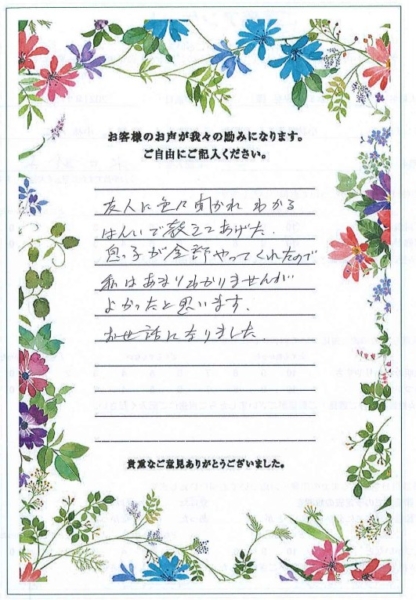 お客様のお声が我々の励みになります。
ご自由にご記入ください。
友人に色々聞かれ わかる
はんいで教えてあげた.
息子が全部やってくれたので
私はあまりわかりませんが
よかったと思います.
お世話になりました.
貴重なご意見ありがとうございました。